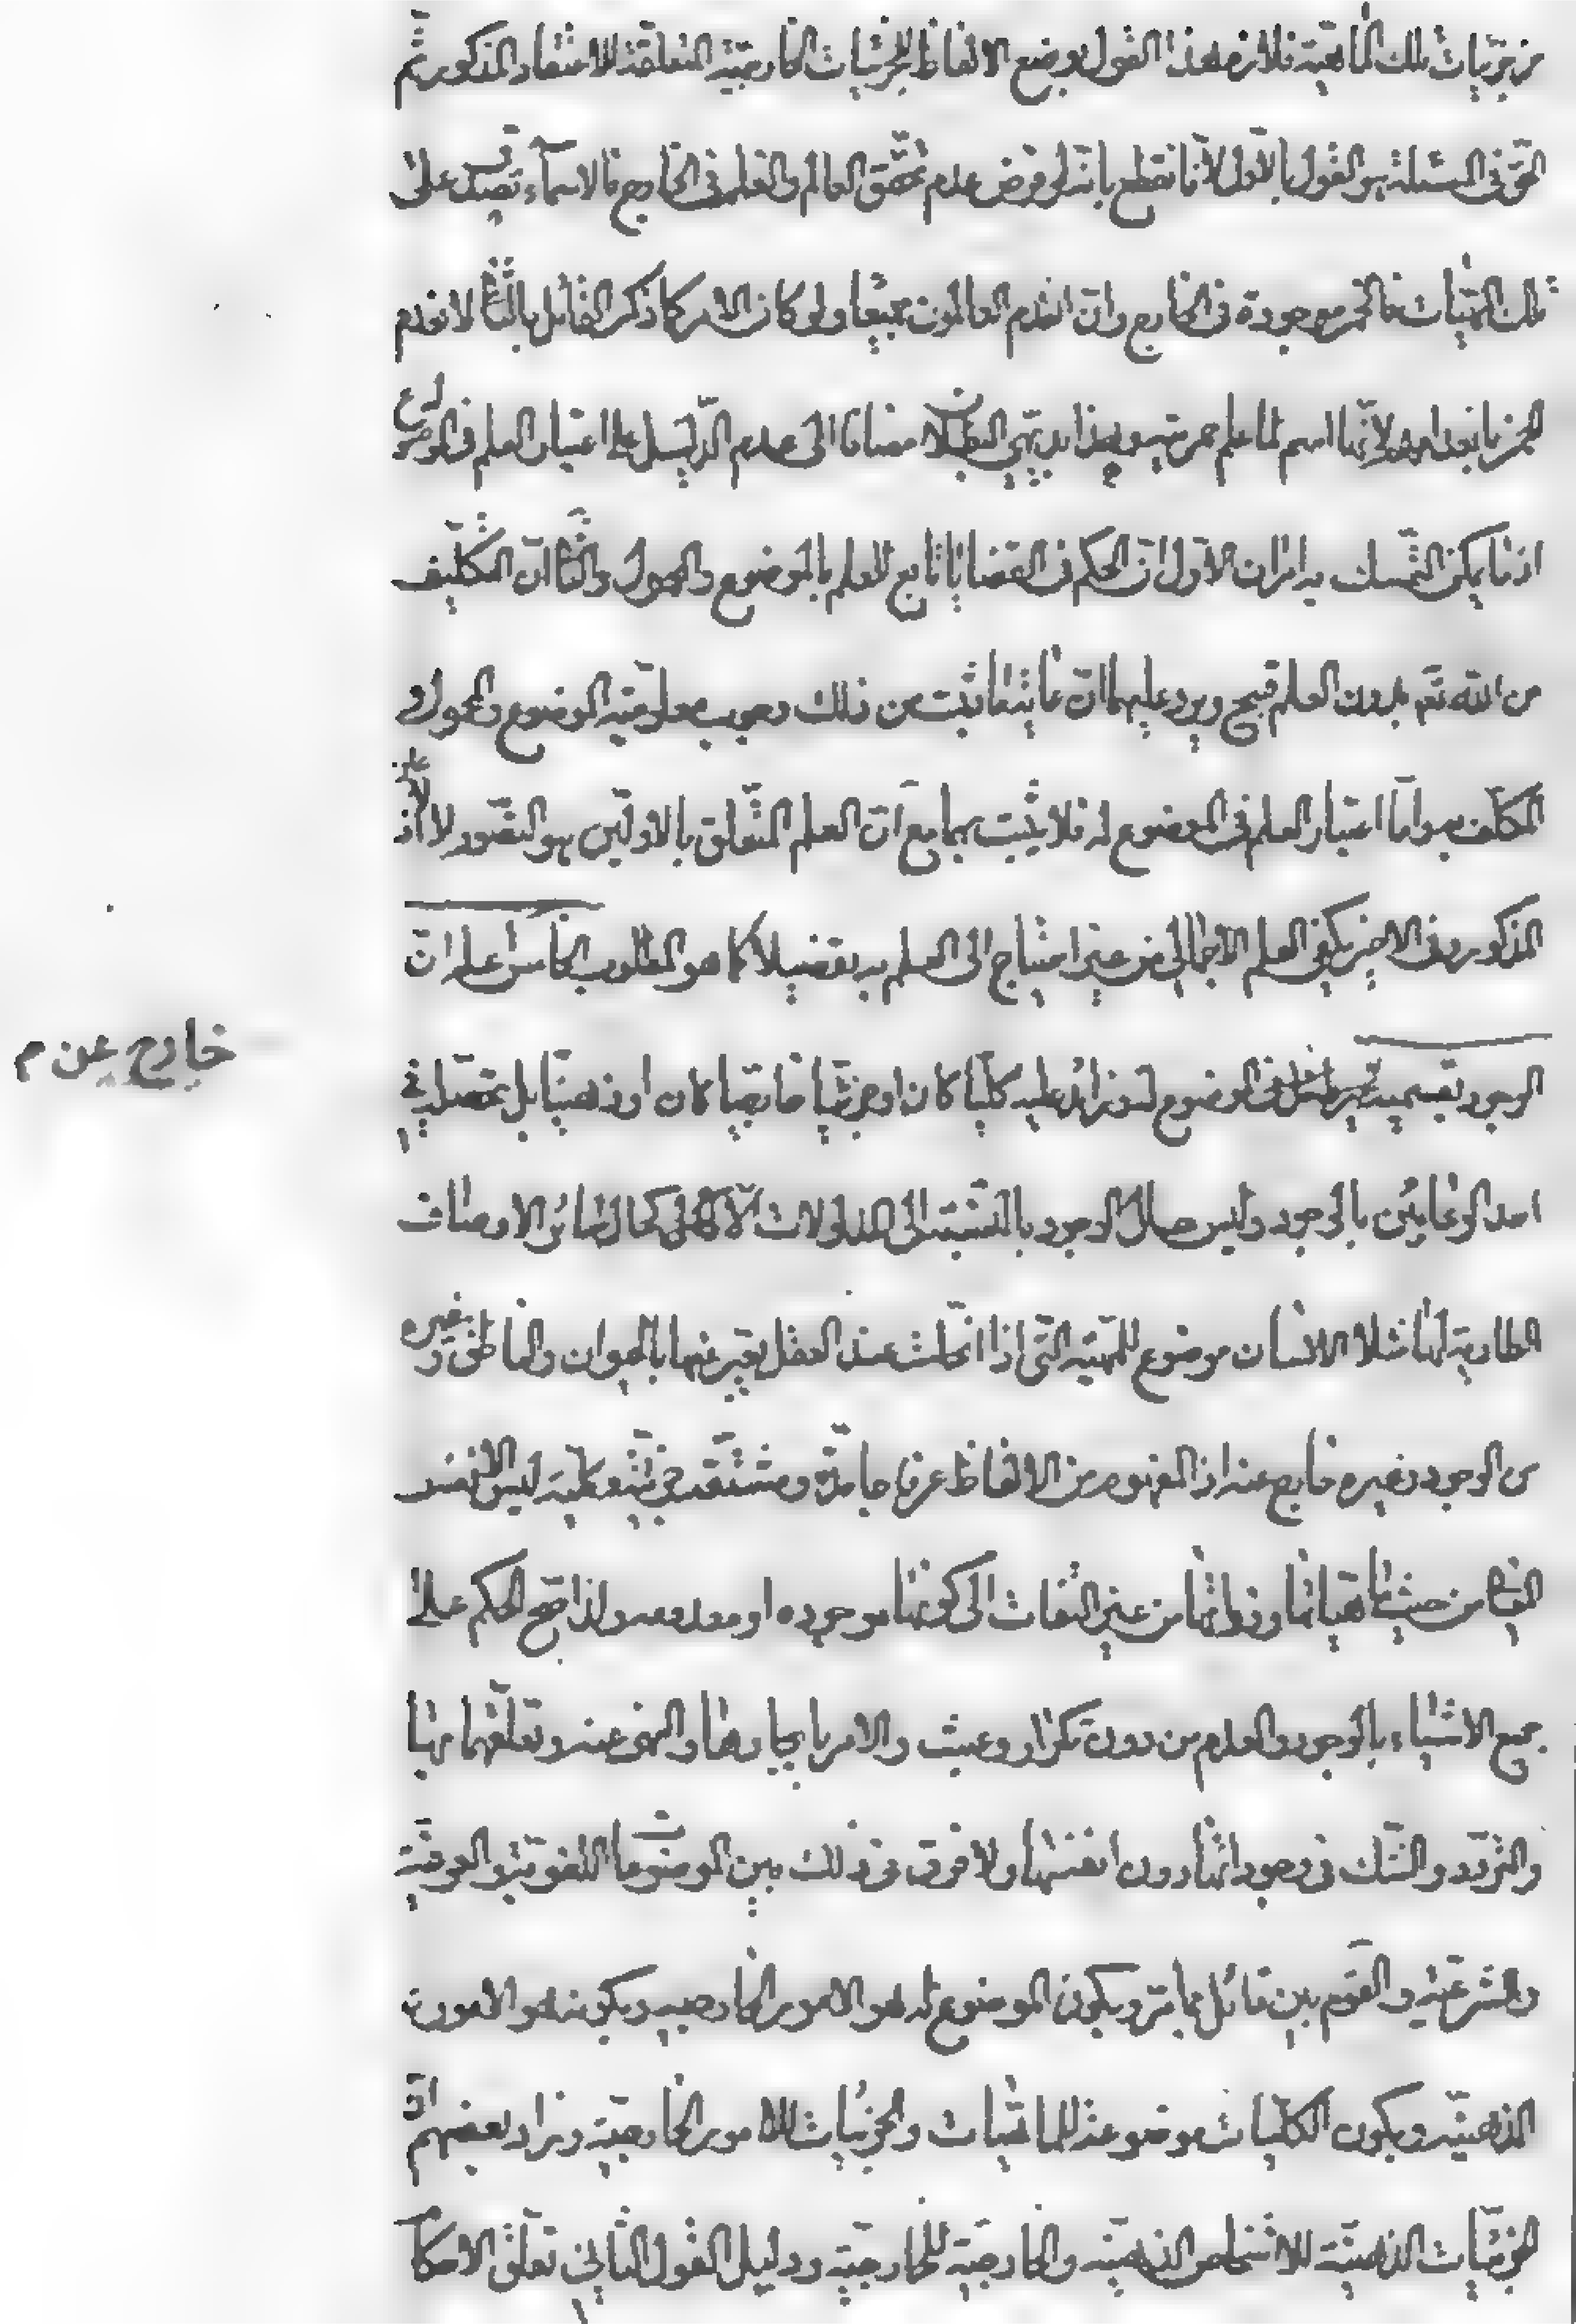 من جزئيات تلك الماهية فلازم هذا القول بوضع الالفاظ للجزئيات الخارجية المتعلقة للاعتقاد المذكور ثم
الحق فى المسئلة هو القول بالاول لانا نقطع بانه لو فرض عدم تحقق العالم والعلم فى الخارج فالاسماء تصدق على
تلك المهيات فالخمر موجودة فى الخارج وان انعدم العالمون جميعا ولو كان الامر كما ذكر القائل بالثانى لانعدم
الخمر بانعدامهم لانها اسم لما علم خمريته وهذا بديهى البطلان مضافا الى عدم الدليل على اعتبار العلم فى الموضوع له
اذ ما يمكن التمسك به امران الاول ان الحكم فى القضايا تابع للعلم بالموضوع والمحمول والثانى ان التكليف
من الله تعم بدون العلم قبيح ويرد عليهما ان غاية ما ثبت من ذلك وجوب معلومية الموضوع والمحمول و
المكلف به واما اعتبار العلم فى الموضوع له فلا يثبت بهما مع ان العلم المتعلق بالاولين هو التصور لا الاذعان
المذكور وفى الاخير يكفى العلم الاجمالى من غير احتياج الى العلم به تفصيلا كما هو المطلوب الخامس اعلم ان
الوجود بقسميه غير داخل فى الموضوع له وزائد عليه كليا كان او جزئيا خارجيا كان او ذهنيا بل تحصله فى
احد الوعائين بالوجود وليس حال الوجود بالنسبة الى المدلولات الا كحال سائر الاوصاف
الطارية لها مثلا الانسان موضوع للمهية التى اذا انحلت عند العقل يعبر عنها بالحيوان والناطق وغيره
من الوجود وغيره خارج عنه اذ المفهوم من الالفاظ عرفا جامدة ومشتقة جزئية وكلية ليس الا نفس
من حيث ماهياتها وذواتها من غير التفات الى كونها موجوده او معدومه ولذا صح الحكم على
جميع الاشياء بالوجود والعدم من دون تكرار وعبث والامر بايجادها والنهى عنه وتعلقهما بها
والتردد والشك فى وجوداتها دون انفسها ولا فرق فى ذلك بين الموضوعات اللغوية والعرفية
والشرعية والقوم بين قائل بما مر وبكون الموضوع له هو الامور الخارجيه وبكونه هو الامور
الذهنية وبكون الكليات موضوعة للماهيات والجزئيات للامور الخارجية وزاد بعضهم ان
الجزئيات الذهنية للاشخاص الذهنية والخارجية للخارجية ودليل القول الثانى تعلق الاحكام
خارج عن م